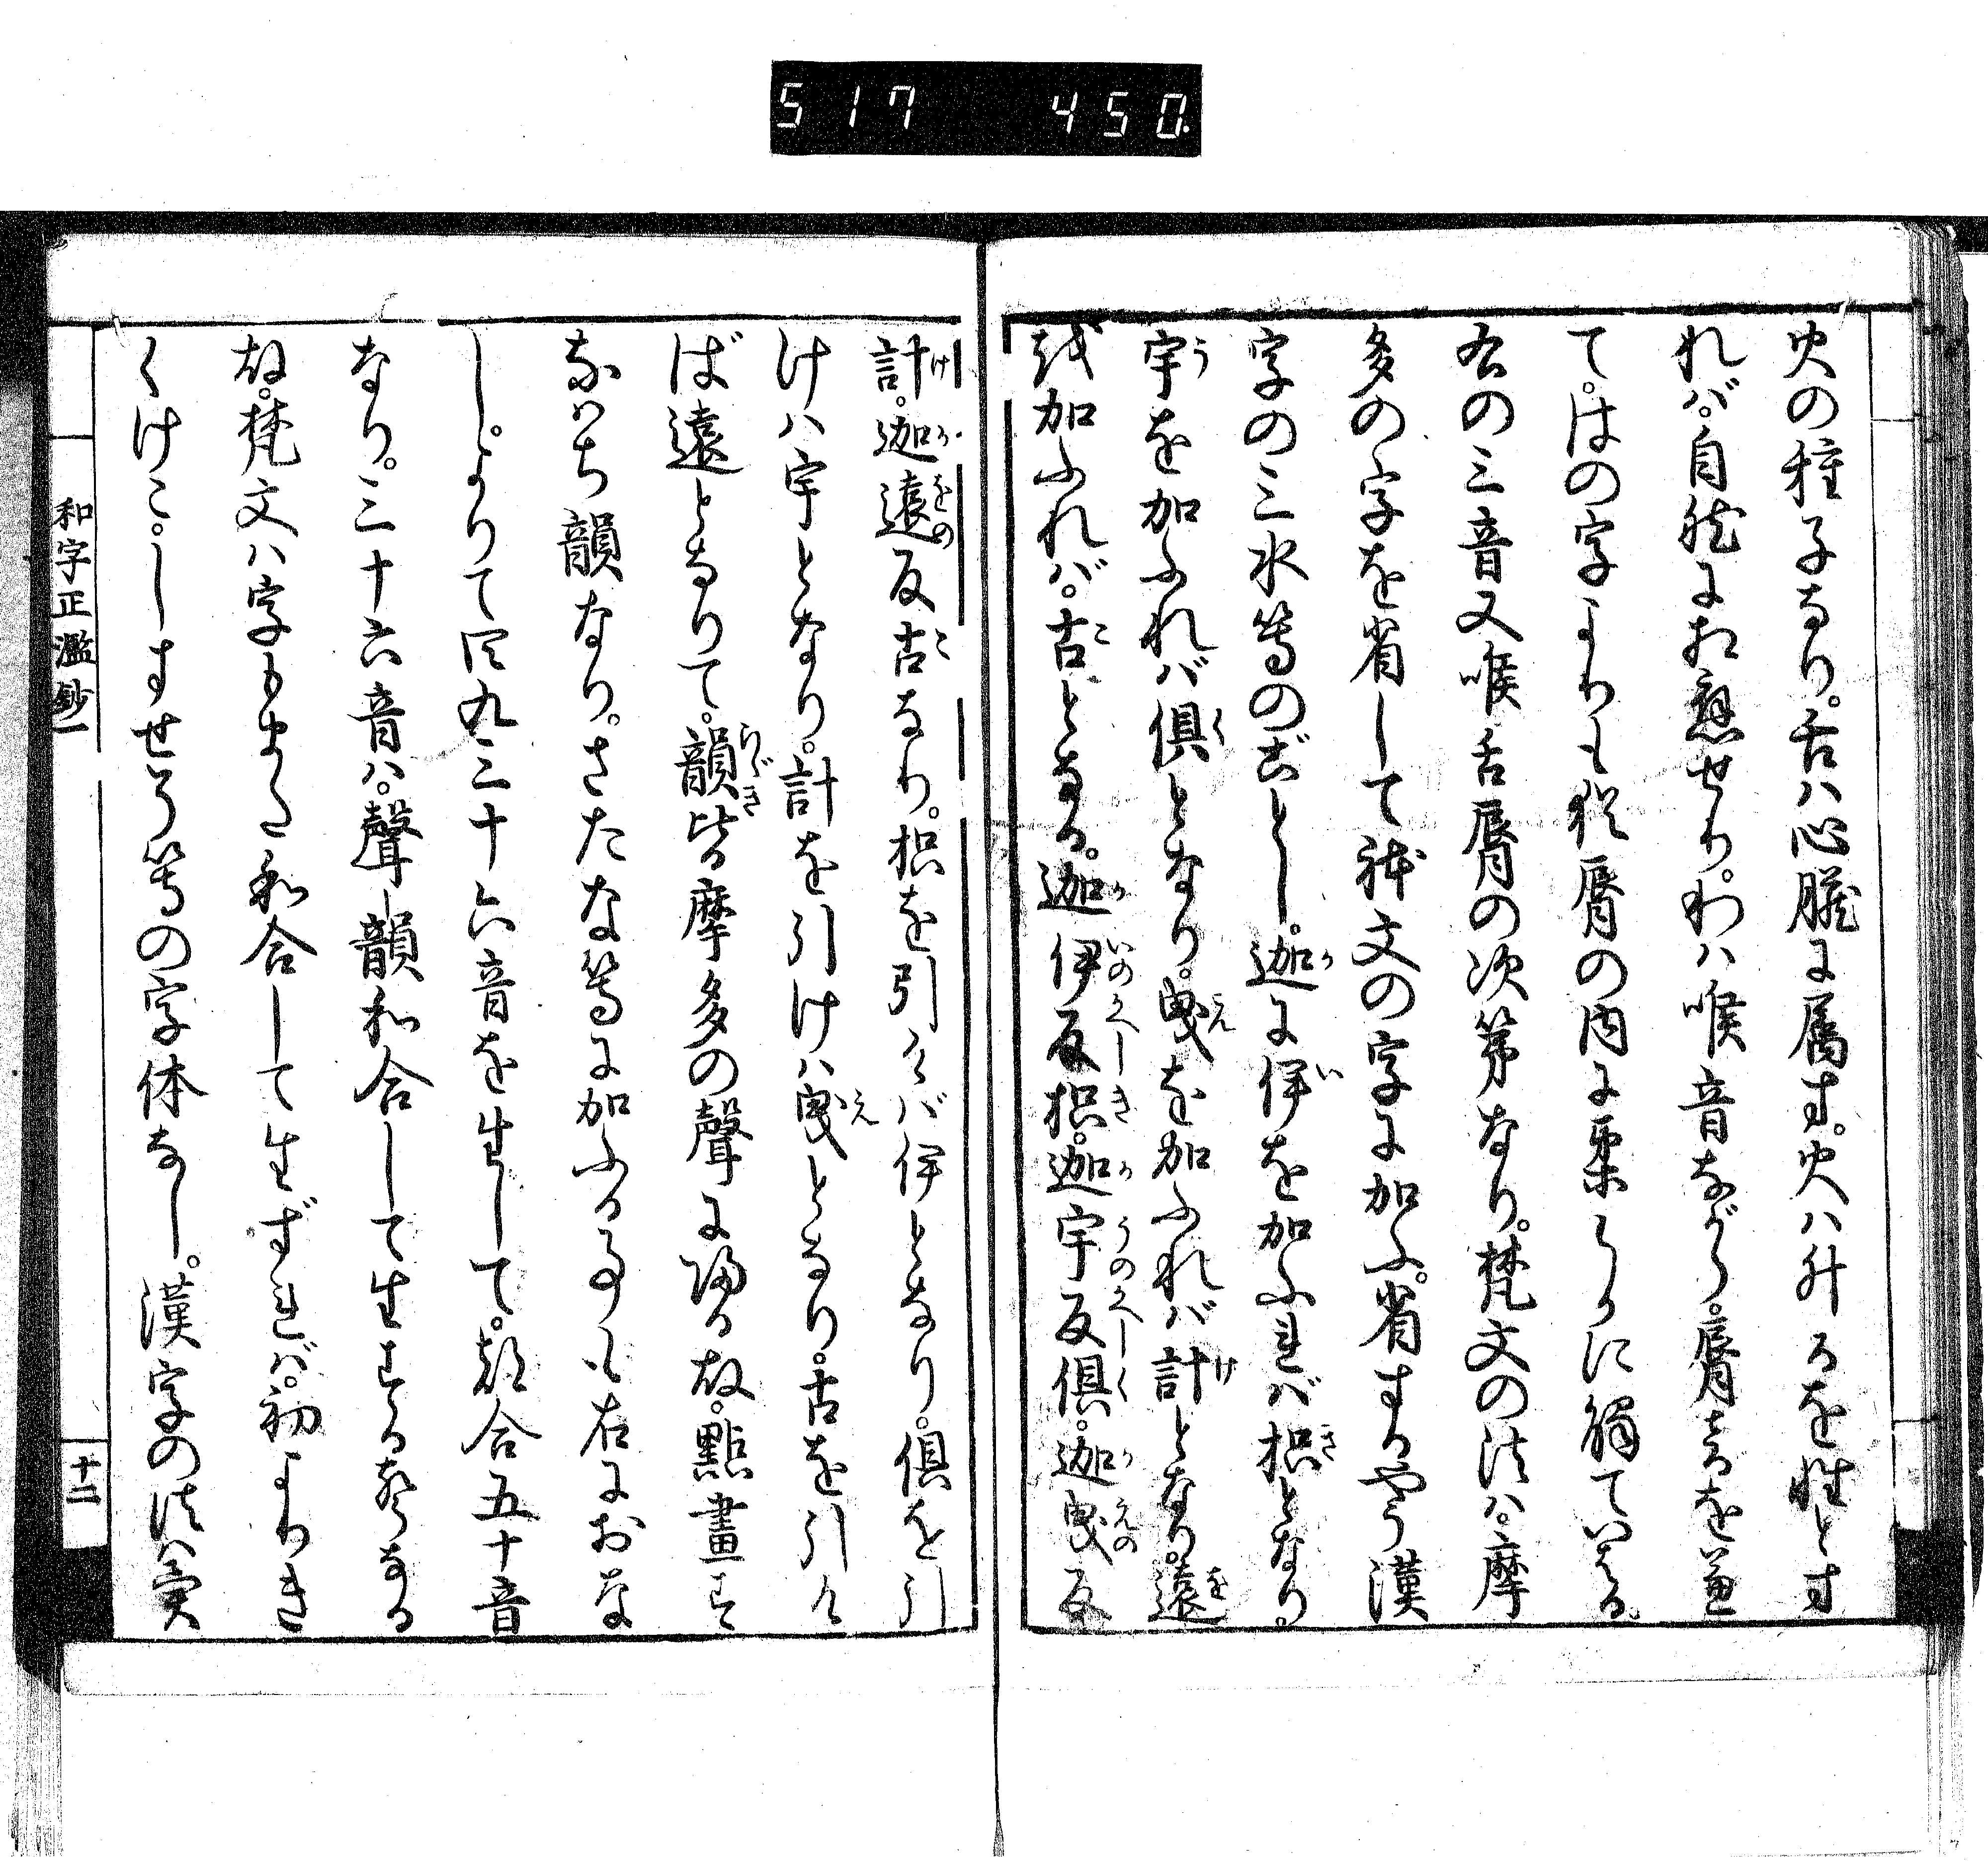 517 450
火の種子なり。舌ハ心臓に属す。火ハ升るを性とす
れバ。自然に相應せり。わハ喉音ながら。脣音を兼
て。はの字よりも猶脣の内に柔らかに觸ていはる。
右の三音又喉舌脣の次第なり。梵文の法ハ。摩
多の字を省して躰文の字に加ふ。省するやう漢
字の三水等のごとし。迦に伊を加ふれバ枳となり。
宇を加ふれバ倶となり。曳を加ふれバ計となり。遠
を加ふれバ。古となる。迦伊反枳。迦宇反倶。迦曳反
計。迦遠反古なり。枳を引けバ伊となり。倶を引
けハ宇となり。計を引けハ曳となり。古を引け
ば遠となりて。韻皆摩多の聲に歸る故。點畫す
なハち韻なり。さたな等に加ふる事も右におな
し。よりて四九三十六音を生して。都合五十音
なり。三十六音ハ。聲韻和合して生する音なる
故。梵文ハ字もまた和合して生ずれバ。初よりき
くけこ。しすせそ等の字体なし。漢字の法ハ異
和字正濫鈔一
十二